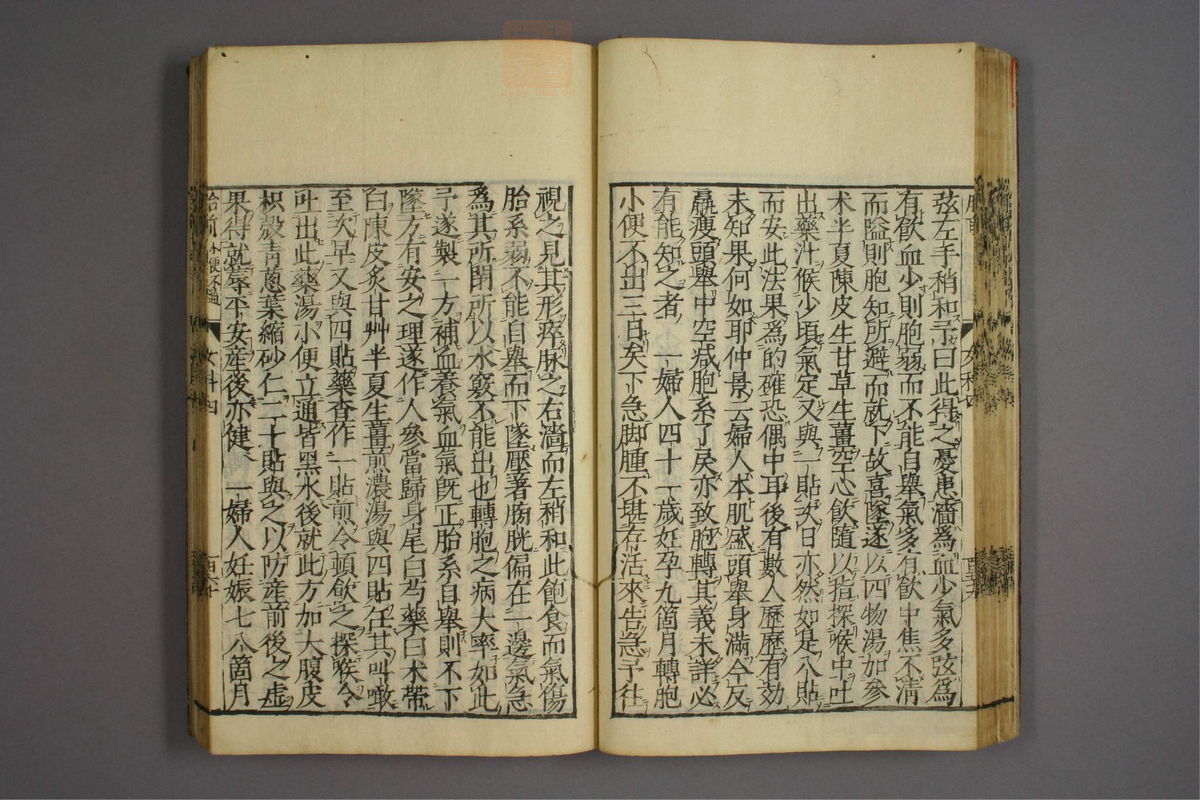 弦左手稍和予曰此得之憂患濇爲血少氣多弦爲
有飲血少則胞弱而不能自舉氣多有飲中焦不清
而隘則胞知所避而就下故喜墜遂以四物湯加參
术半夏陳皮生甘草生薑空心飲隨以指探喉中吐
出藥汁候少頃氣定又與一貼次日亦然如是八貼
而安此法果爲的確恐偶中耳後有數人歷歷有効
未知果何如耶仲景云婦人本肌盛頭舉身滿今反
羸瘦頭舉中空減胞系了戾亦致胞轉其義未詳必
有能知之者 一婦人四十一歲妊孕九箇月轉胞
小便不出三日矣下急脚腫不堪存活來告急予往
視之見其形瘁脉之右濇而左稍和此飽食而氣傷
胎系弱不能自舉而下墜壓著膀胱偏在一邊氣急
爲其所閉所以水竅不能出也轉胞之病大率如此
予遂製一方補血養氣血氣旣正胎系自舉則不下
墜方有安之理遂作人參當歸身尾白芍藥白术帶
白陳皮炙甘艸半夏生薑煎濃湯與四貼任其叫噉
至次早又與四貼藥査作一貼煎令頓飲之探喉令
吐出此藥湯小便立通皆黑水後就此方加大腹皮
枳殼靑葱葉縮砂仁二十貼與之以防産前後之虚
果得就蓐平安産後亦健 一婦人妊娠七八箇月
胎前 小便不通 女科四